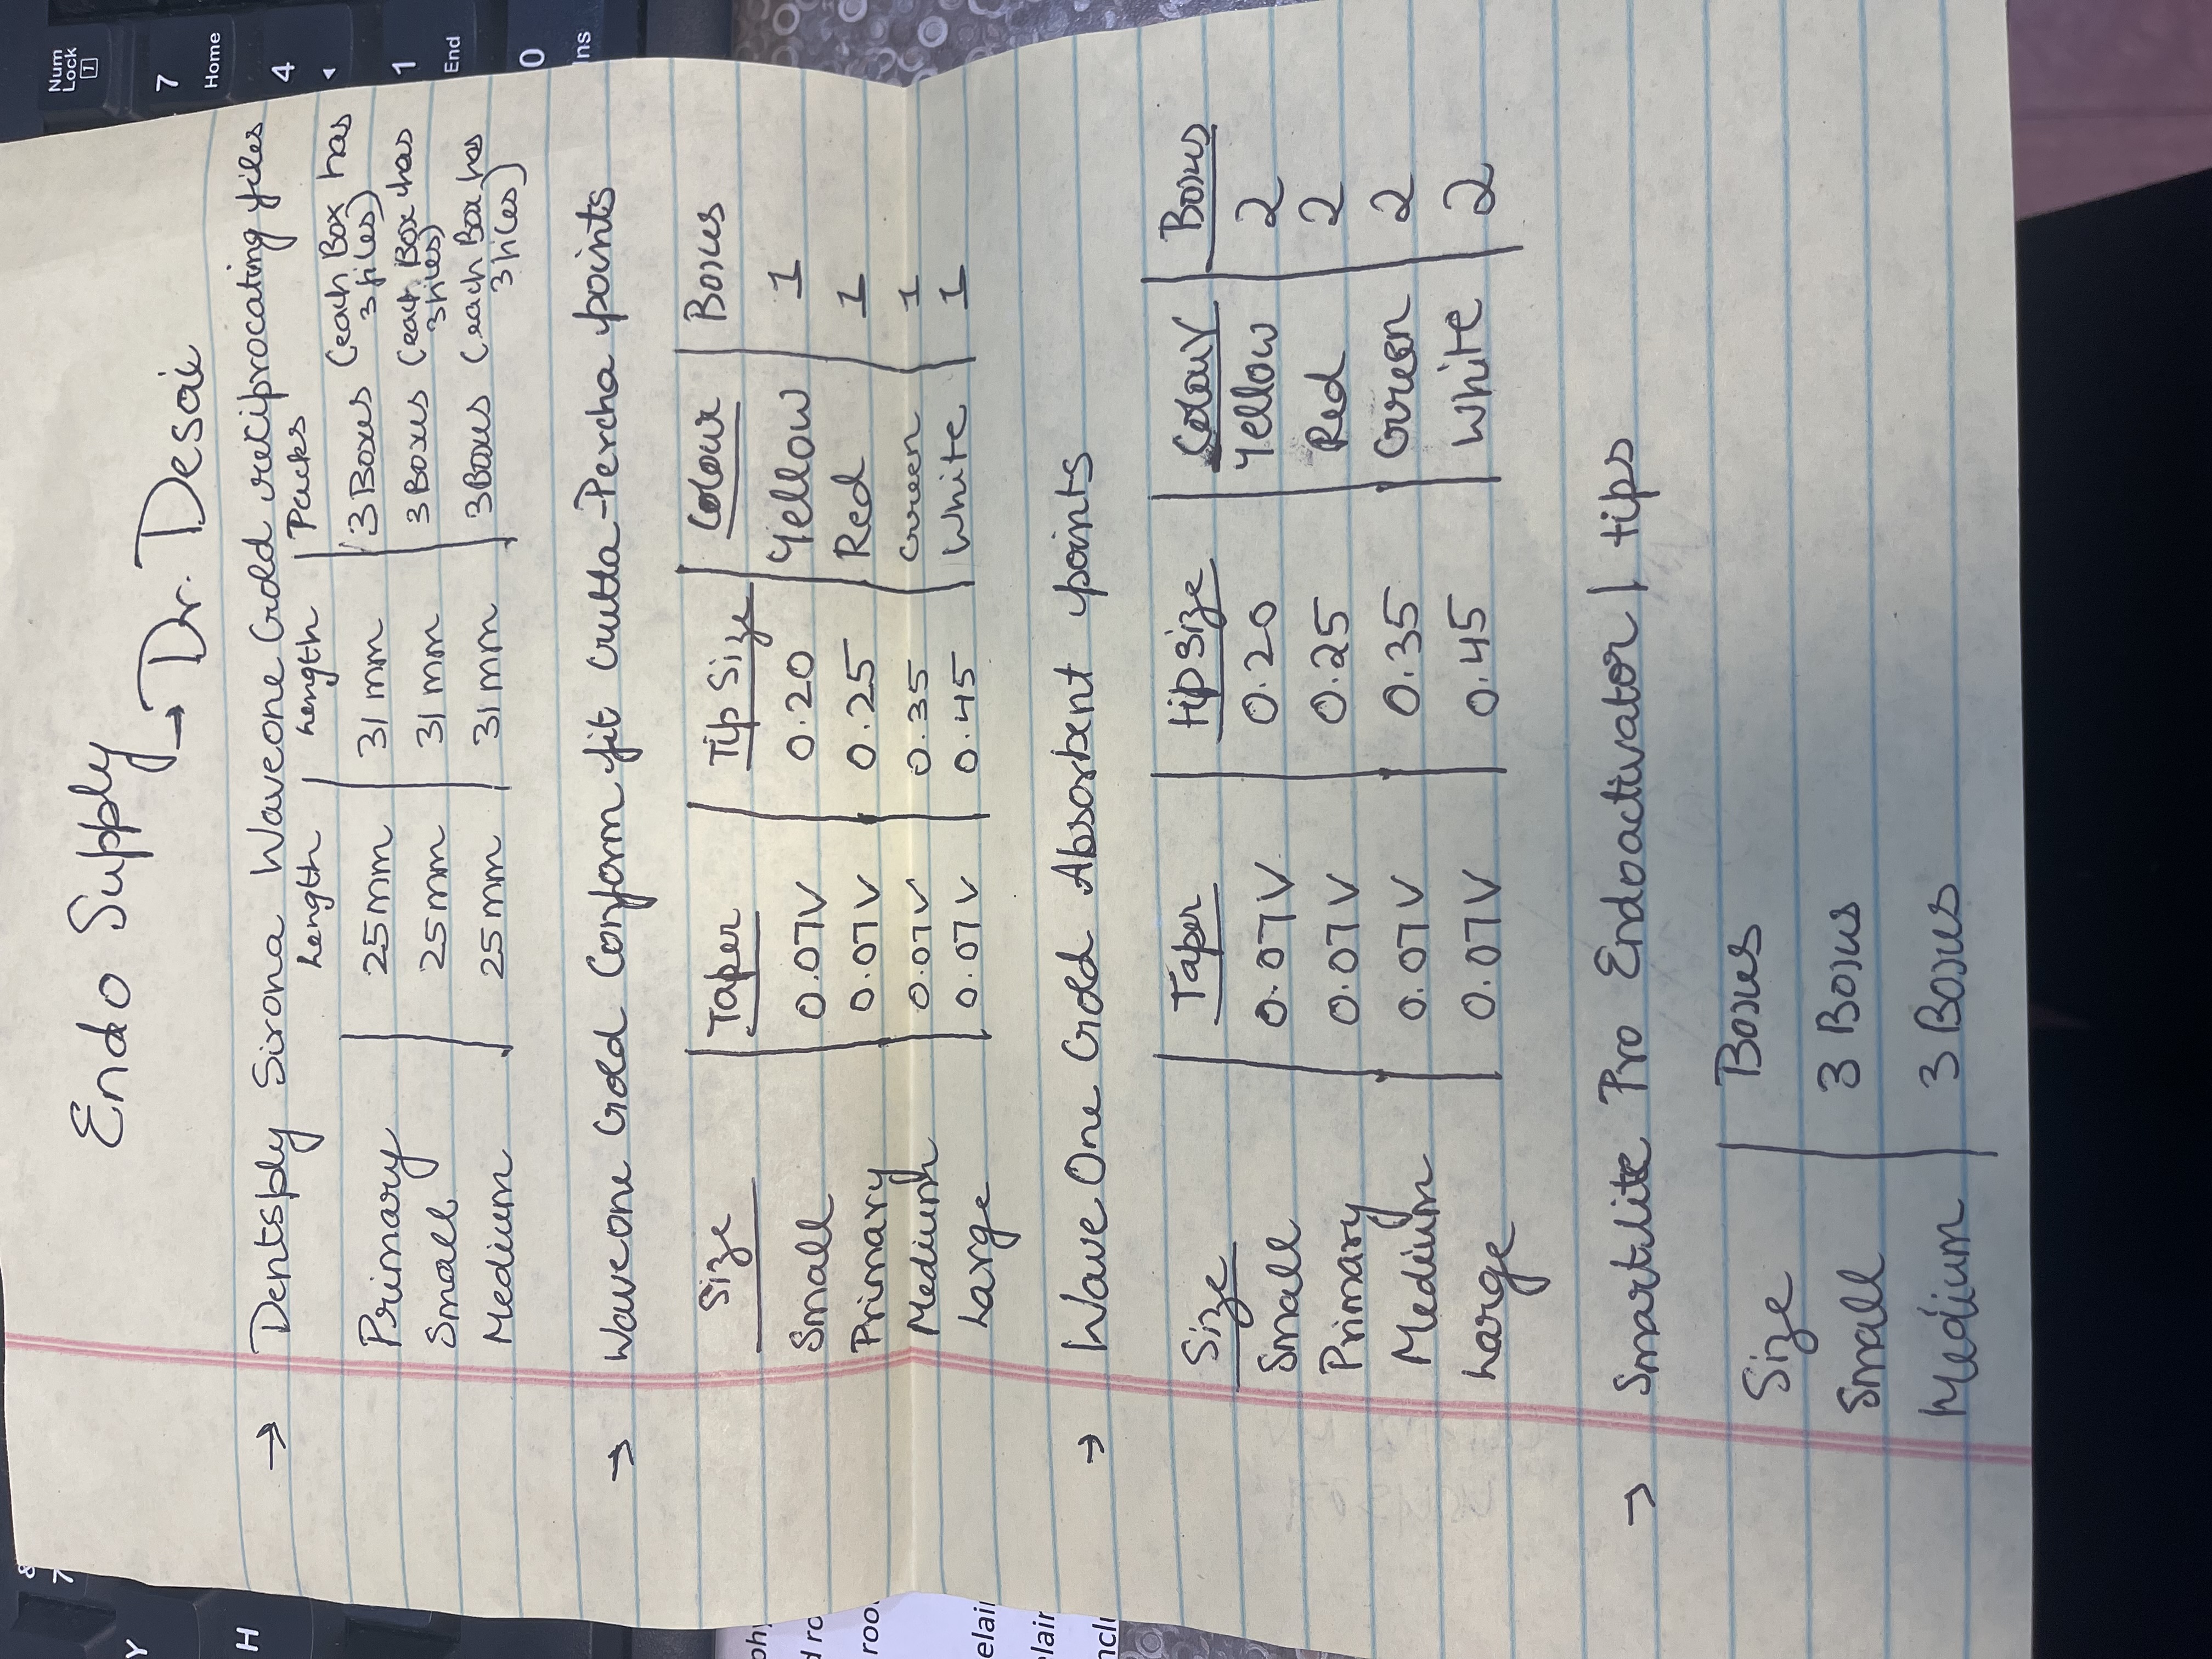 Endo Supply
→ Dr. Desai
→ Dentsply Sirona Waveone Gold reciprocating files
Length | Length | Packs
Primary | 25mm | 31mm | 3 Boxes (each Box has 3 files)
Small | 25mm | 31mm | 3 Boxes (each Box has 3 files)
Medium | 25mm | 31mm | 3 Boxes (each Box has 3 files)
→ Waveone Gold Conform fit Gutta-Percha points
Size | Taper | Tip Size | Colour | Boxes
Small | 0.07V | 0.20 | Yellow | 1
Primary | 0.07V | 0.25 | Red | 1
Medium | 0.07V | 0.35 | Green | 1
Large | 0.07V | 0.45 | White | 1
→ Wave One Gold Absorbent points
Size | Taper | tip Size | Colour | Boxes
Small | 0.07V | 0.20 | Yellow | 2
Primary | 0.07V | 0.25 | Red | 2
Medium | 0.07V | 0.35 | Green | 2
Large | 0.07V | 0.45 | White | 2
→ Smartlite Pro Endoactivator | tips
Size | Boxes
Small | 3 Boxes
Medium | 3 Boxes
Num
Lock
7
Home
4
1
End
0
Ins
Y
H